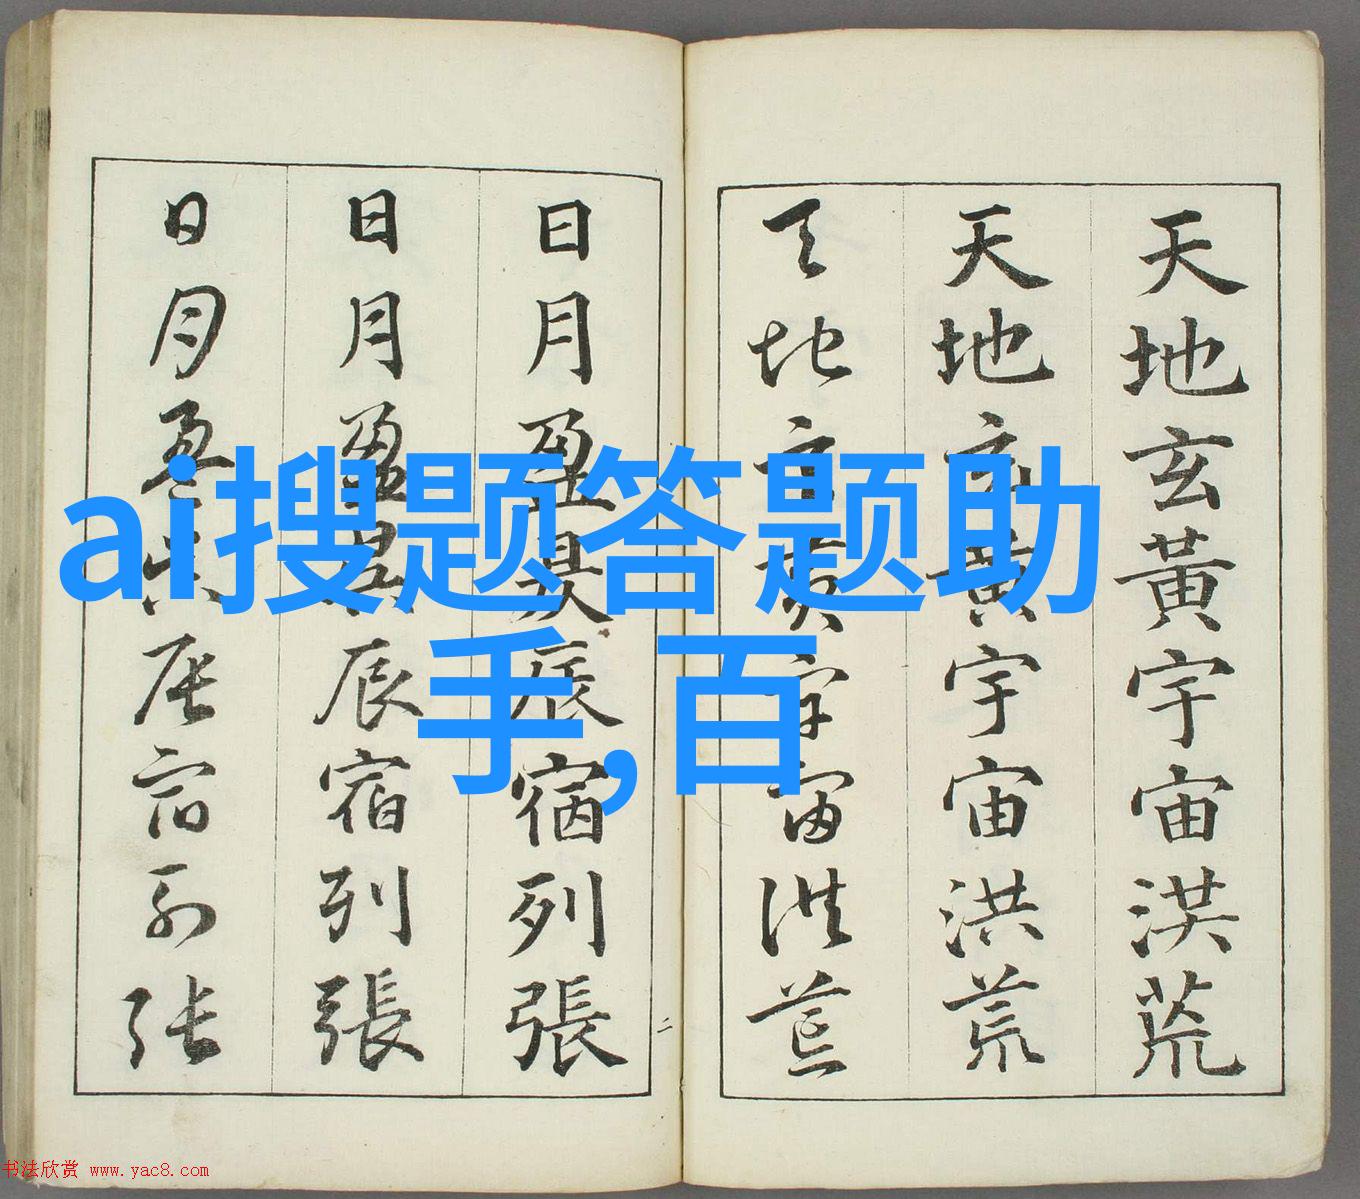 天地玄黃宇宙洪荒
天地玄黃宇宙洪荒
天地玄黃宇宙洪荒
二
日月盈昃辰宿列張
日月盈昃辰宿列張
日月盈昃辰宿列張
ai搜题答题助
手,百
书法欣赏 www.yac8.com